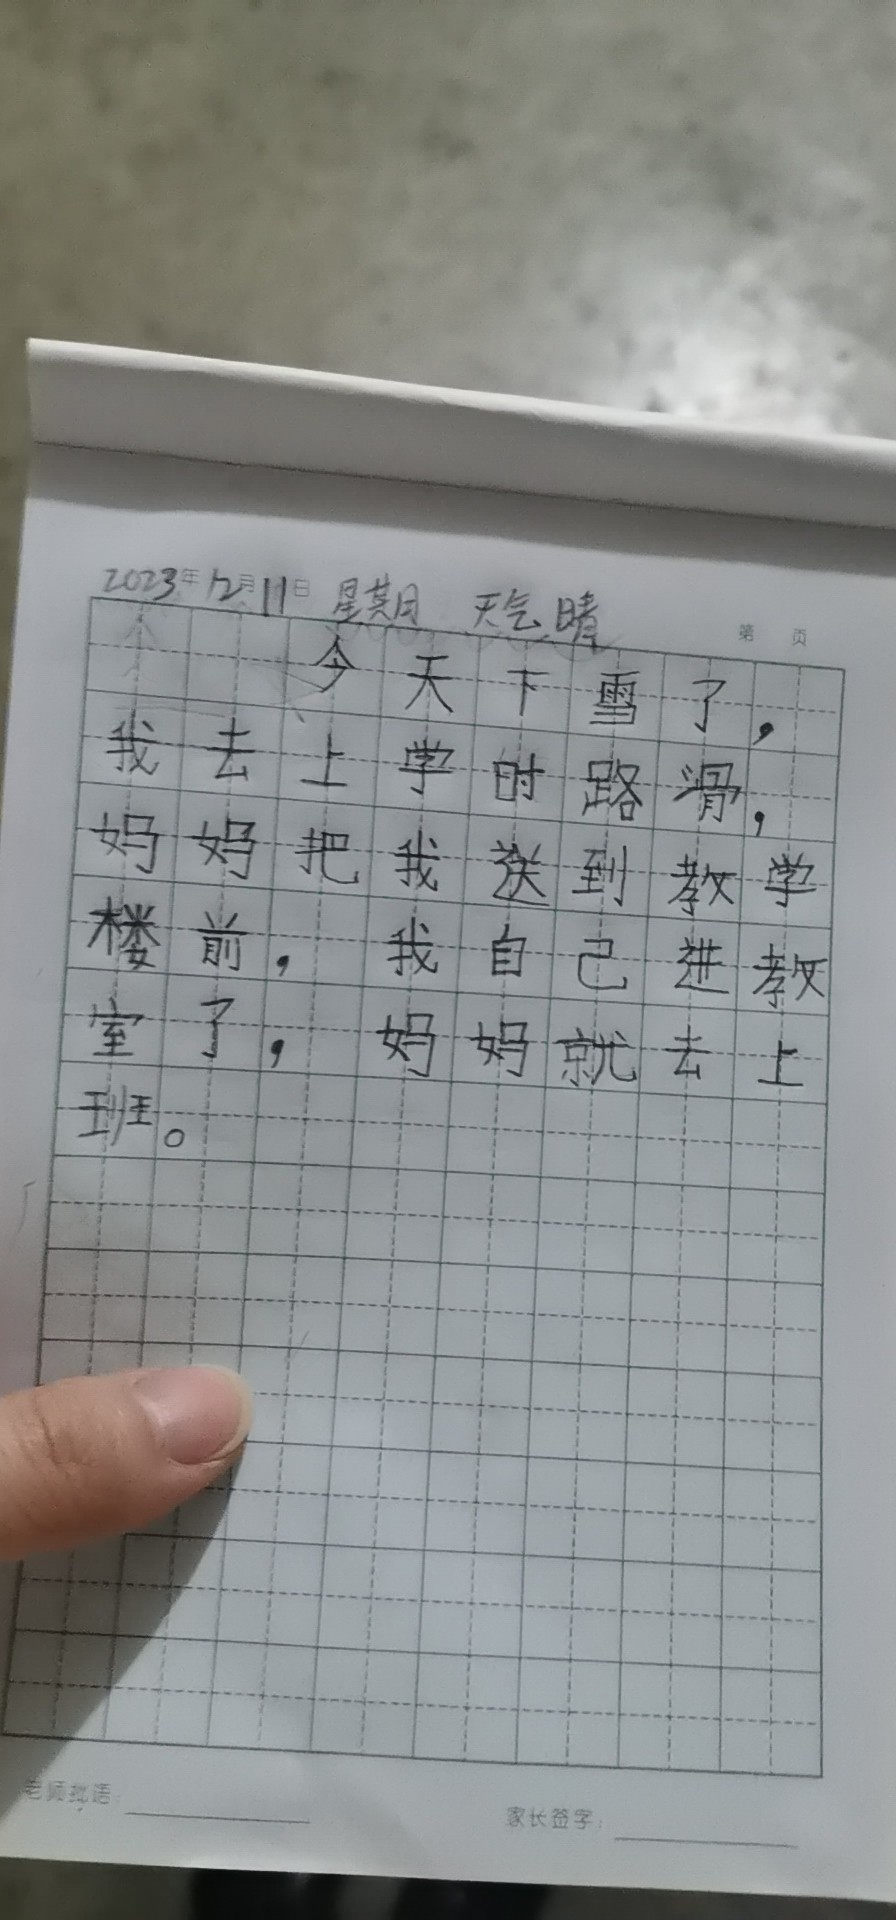 2023年12月11日 星期 天气 晴
第 页
今天下雪了，
我去上学时路滑，
妈妈把我送到教学
楼前，我自己进教
室了，妈妈就去上
班。
老师批语：
家长签字：